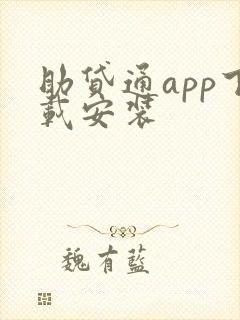 助贷通app下
载安装
魏有蓝